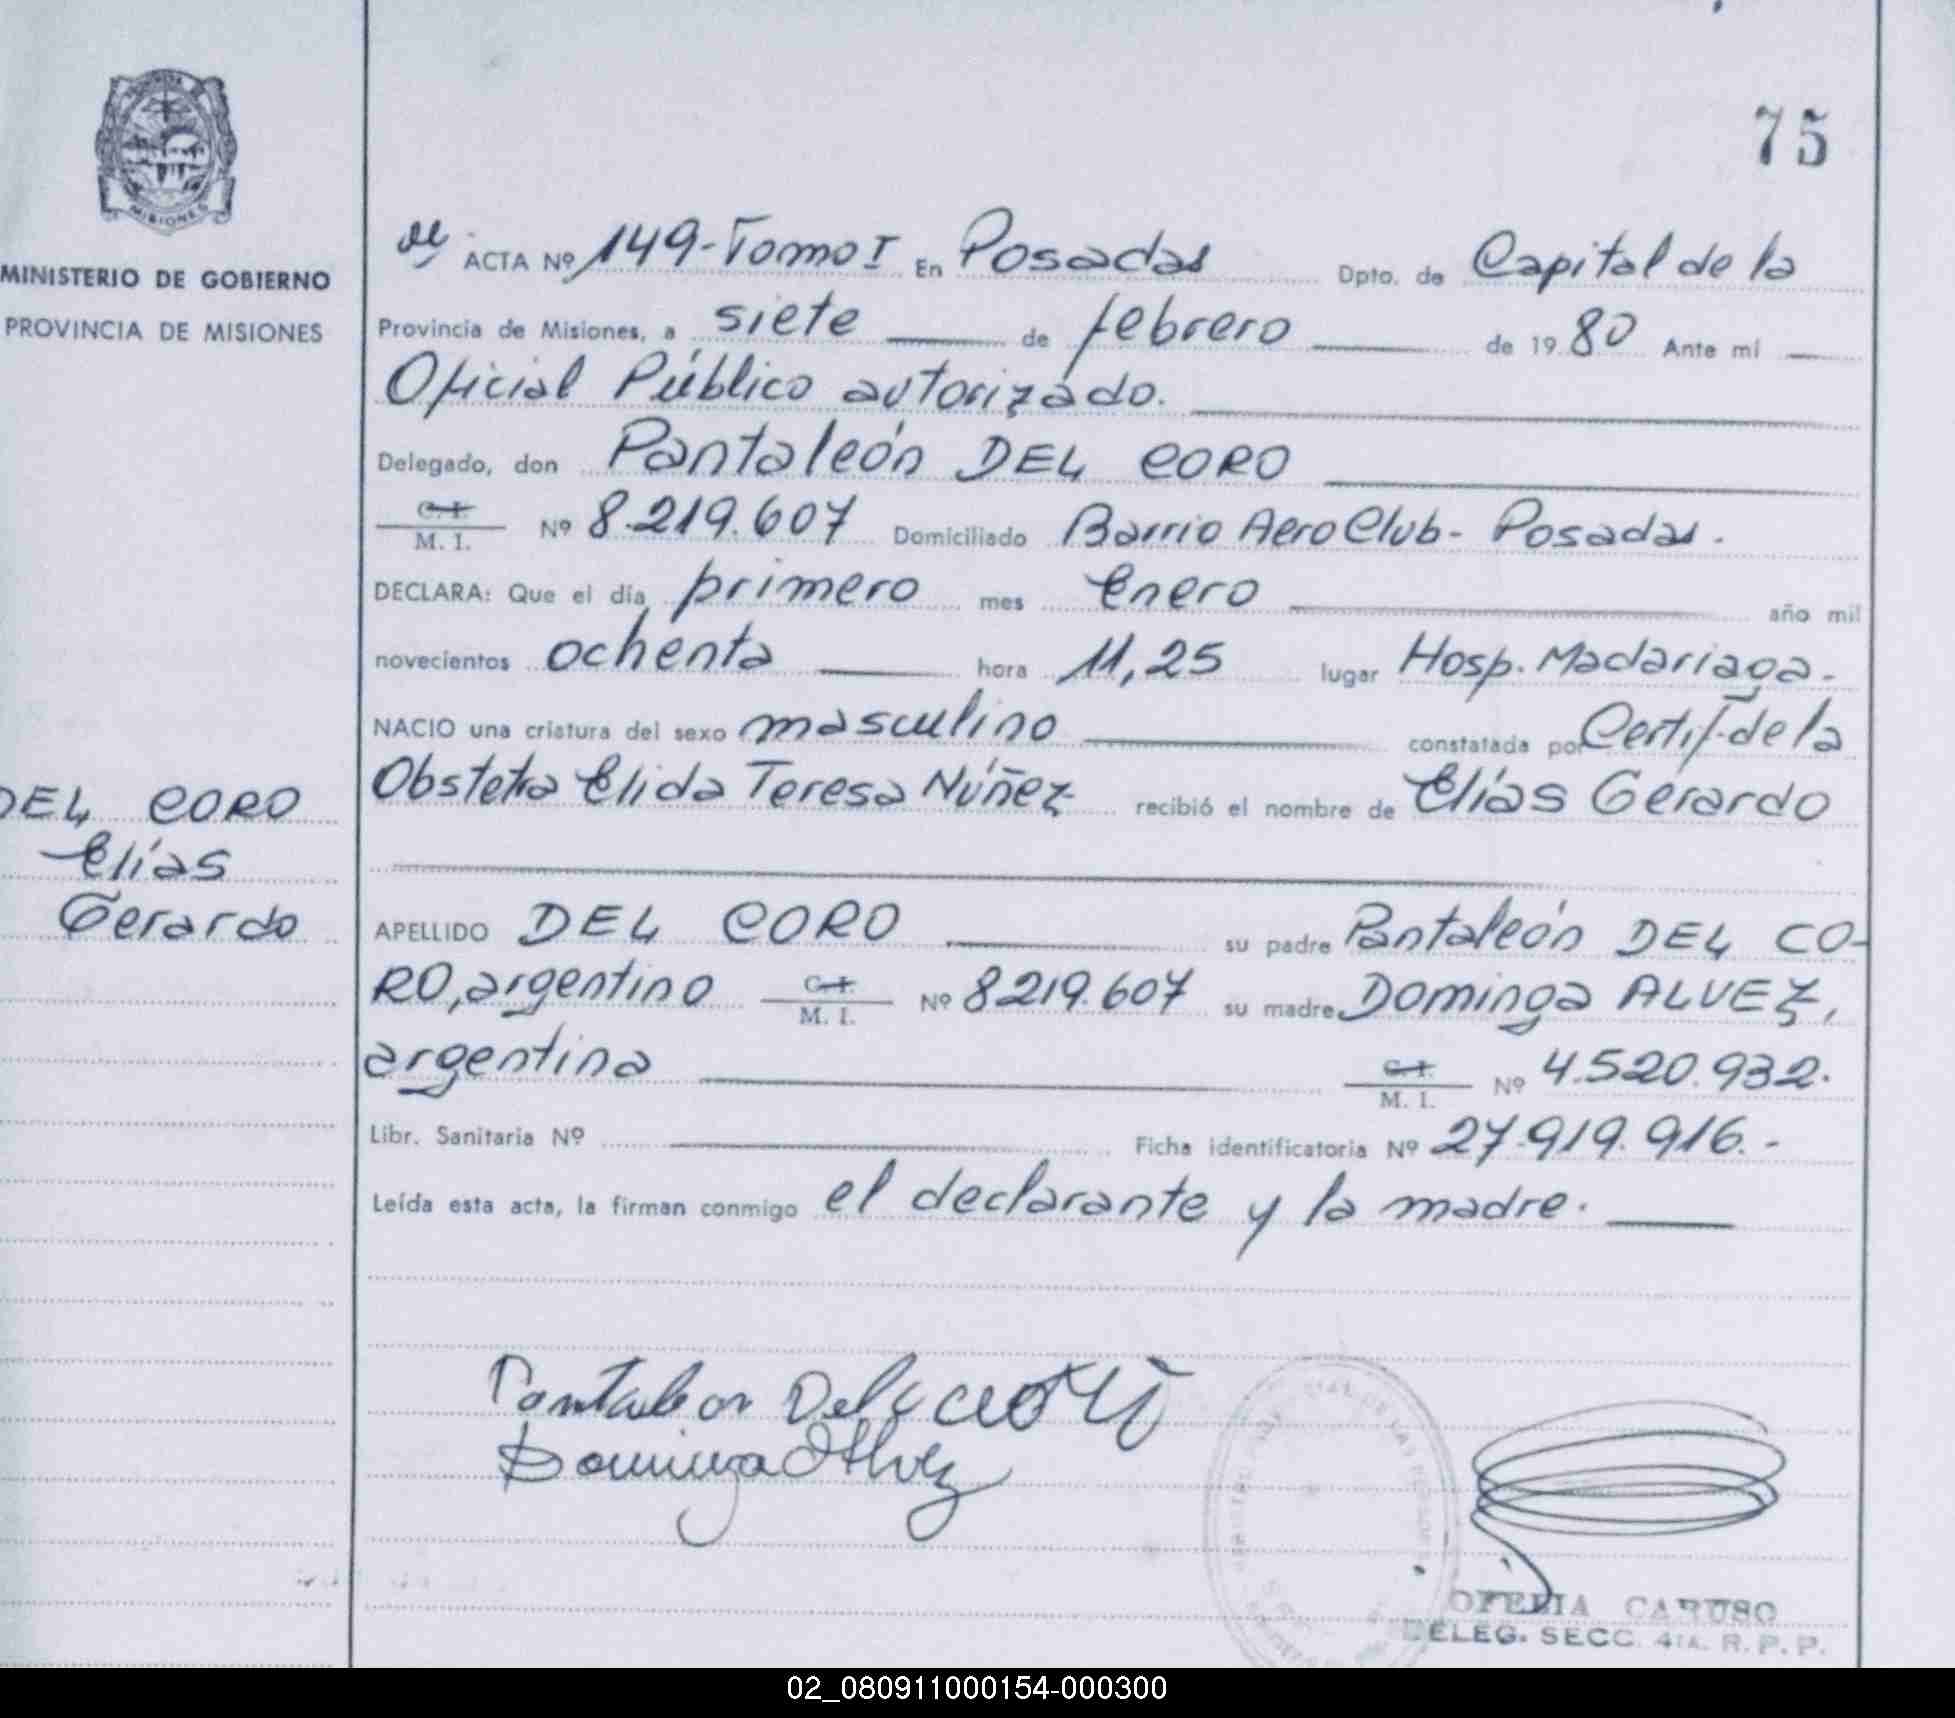 75
MISIONES
MINISTERIO DE GOBIERNO
PROVINCIA DE MISIONES
DEL CORO
Elías
Gerardo
ACTA Nº 149-Tomo I En Posadas Dpto. de Capital de la
Provincia de Misiones, a siete de febrero de 1980 Ante mi
Oficial Público autorizado.
Delegado, don Pantaleón DEL CORO
C. I.
M. I. Nº 8.219.607 Domiciliado Barrio Aero Club- Posadas.
DECLARA: Que el día primero mes Enero año mil
novecientos ochenta hora 11,25 lugar Hosp. Madariaga.
NACIO una criatura del sexo masculino constatada por Certif. de la
Obstetra Elida Teresa Núñez recibió el nombre de Elías Gerardo
APELLIDO DEL CORO su padre Pantaleón DEL CO-
RO, argentino C. I. M. I. Nº 8219.607 su madre Dominga ALVEZ,
argentina C. I. M. I. Nº 4.520.932.
Libr. Sanitaria Nº Ficha identificatoria Nº 27.919.916.-
Leída esta acta, la firman conmigo el declarante y la madre.
Pantaleon Del
Dominga Alvez
OFELIA CARUSO
DELEG. SECC. 4TA. R. P. P.
02_080911000154-000300